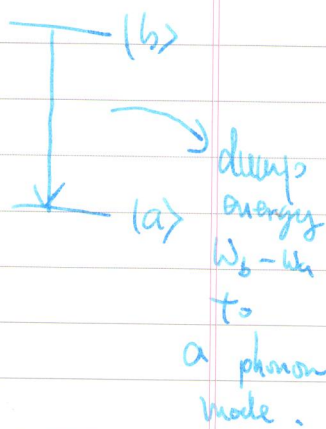 |b>
|a>
dump
energy
ω_b - ω_a
to
a phonon
mode.